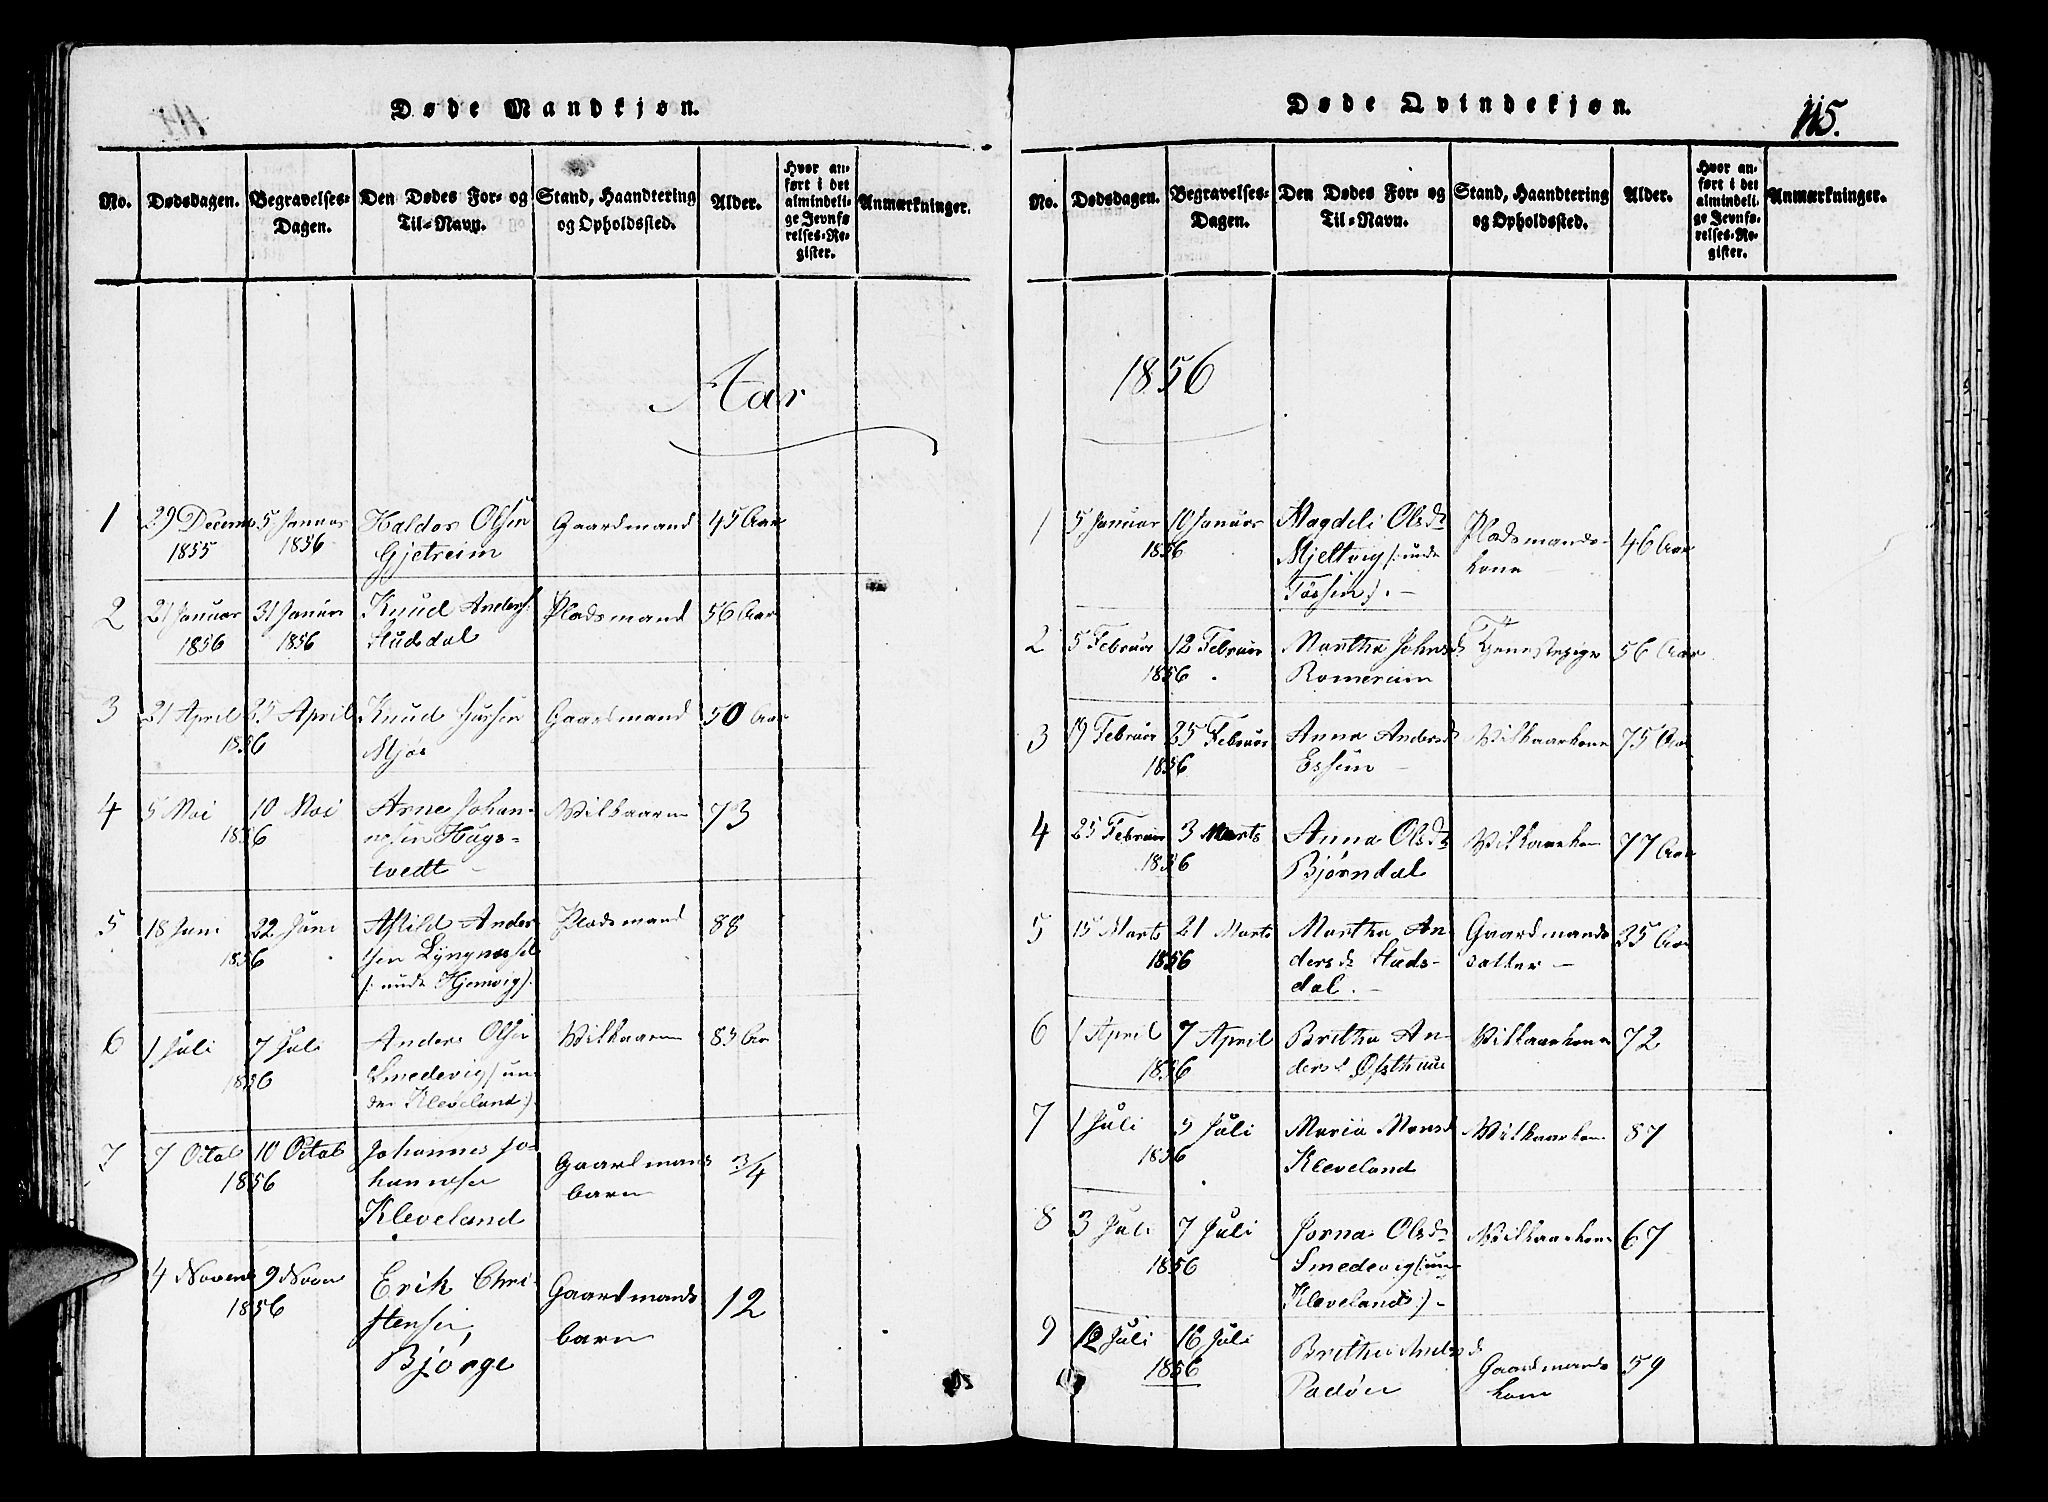 Døde Mandkjøn.
No. Dødsdagen. Begravelses-Dagen. Den Dødes For- og Til-Navn. Stand, Haandtering og Opholdssted. Alder. Hvor anført i det almindelige Jevnførelses-Register. Anmærkninger.
Aar
1 29 Decemb 5 Januar Haldor Olsen Gaardmand 45 Aar
1855 1856 Gjetreim
2 21 Januar 31 Januar Knud Anders: Pladsmand 56 Aar
1856 1856 Studsdal
3 21 April 25 April Knud Gaardmand 50 Aar
1856 Mjøs
4 5 Mai 10 Mai Arne Johan- Vilkaarm 73
1856 nesen Hugs-
tvedt
5 18 Juni 22 Juni Ander- Pladsmand 88
1856 sen
(: unde
6 1 Juli 7 Juli Anders Olsen Vilkaarm 83 Aar
1856 Smedevig (un-
der Kleveland).
7 7 Octob 10 Octob Johannes Jo- Gaardmands
1856 hannesen barn 3/4
Kleveland
4 Novem 9 Novem Erik Chri- Gaardmands 12
1856 stensen, barn
Bjørge
Døde Qvindekjøn. 115.
No. Dødsdagen. Begravelses-Dagen. Den Dødes For- og Til-Navn. Stand, Haandtering og Opholdssted. Alder. Hvor anført i det almindelige Jevnførelses-Register. Anmærkninger.
1856
1 5 Januar 10 Januar Magdeli Olsdr Pladsmands- 46 Aar
1856 Mjeltvig (: unde kone
2 5 Februar 12 Februar Martha Johnsd Tjenestepige 56 Aar
1856 Romereim
3 19 Februar 25 Februar Anna Andersd Vilkaarkone 75 Aar
1856
4 25 Februar 3 Marts Anna Olsdr Vilkaarkone 77 Aar
1856 Bjørndal
5 15 Marts 21 Marts Martha An- Gaardmands 35 Aar
1856 dersdr Studs- datter
dal.
6 1 April 7 April Britha An- Vilkaarkone 72
1856 dersd
7 1 Juli 5 Juli Maria Monsd Vilkaarkone 87
1856 Kleveland
8 3 Juli 7 Juli Olsdr Vilkaarkone 67
1856 Smedevig (: un-
Kleveland:)
9 12 Juli 16 Juli Britha Andersd Gaardmands 59
1856 Padøen kone